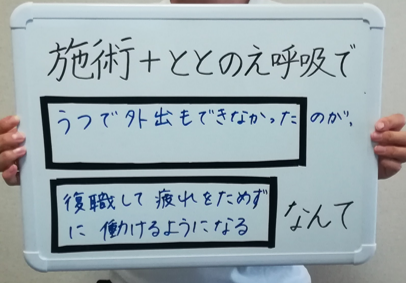 施術+ととのえ呼吸で
うつで外出もできなかったのが、
復職して疲れをためず
に働けるようになる なんて